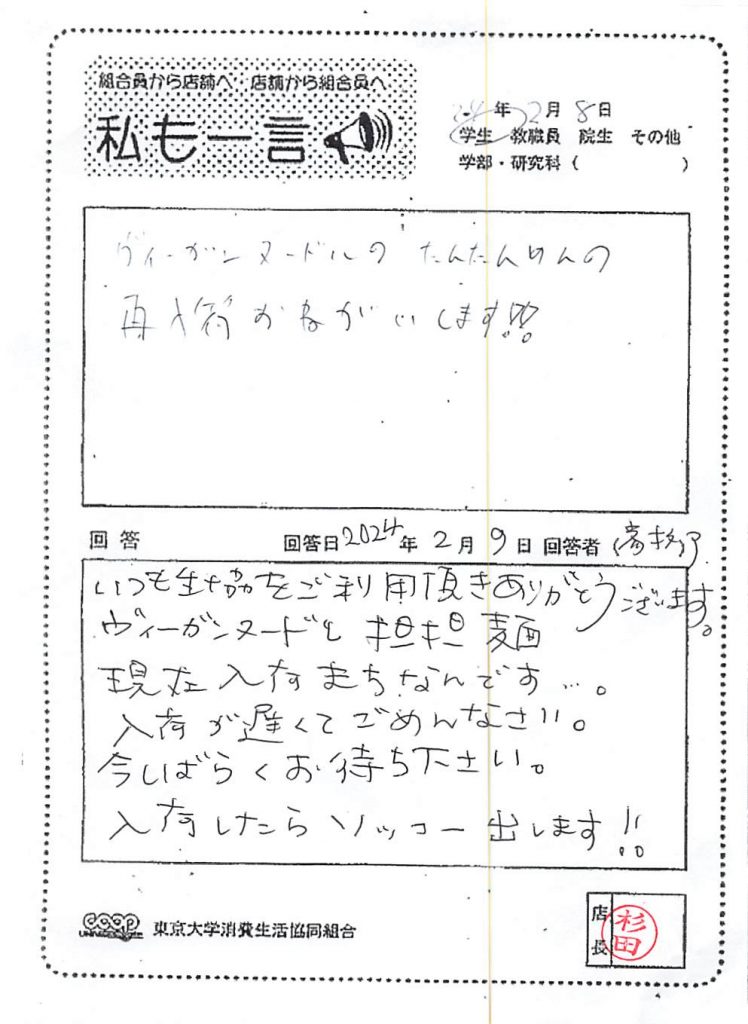 組合員から店舗へ 店舗から組合員へ
私も一言
24年2月8日
学生 教職員 院生 その他
学部・研究科( )
ヴィーガンヌードルの たんたんめんの
再入荷おねがいします!!
回答 回答日2024年2月9日 回答者
いつも生協をご利用頂きありがとうございます。
ヴィーガンヌードル 担担麺
現在入荷まちなんです…。
入荷が遅くてごめんなさい。
今しばらくお待ち下さい。
入荷したらソッコー出します!!
coop 東京大学消費生活協同組合
店長 杉田